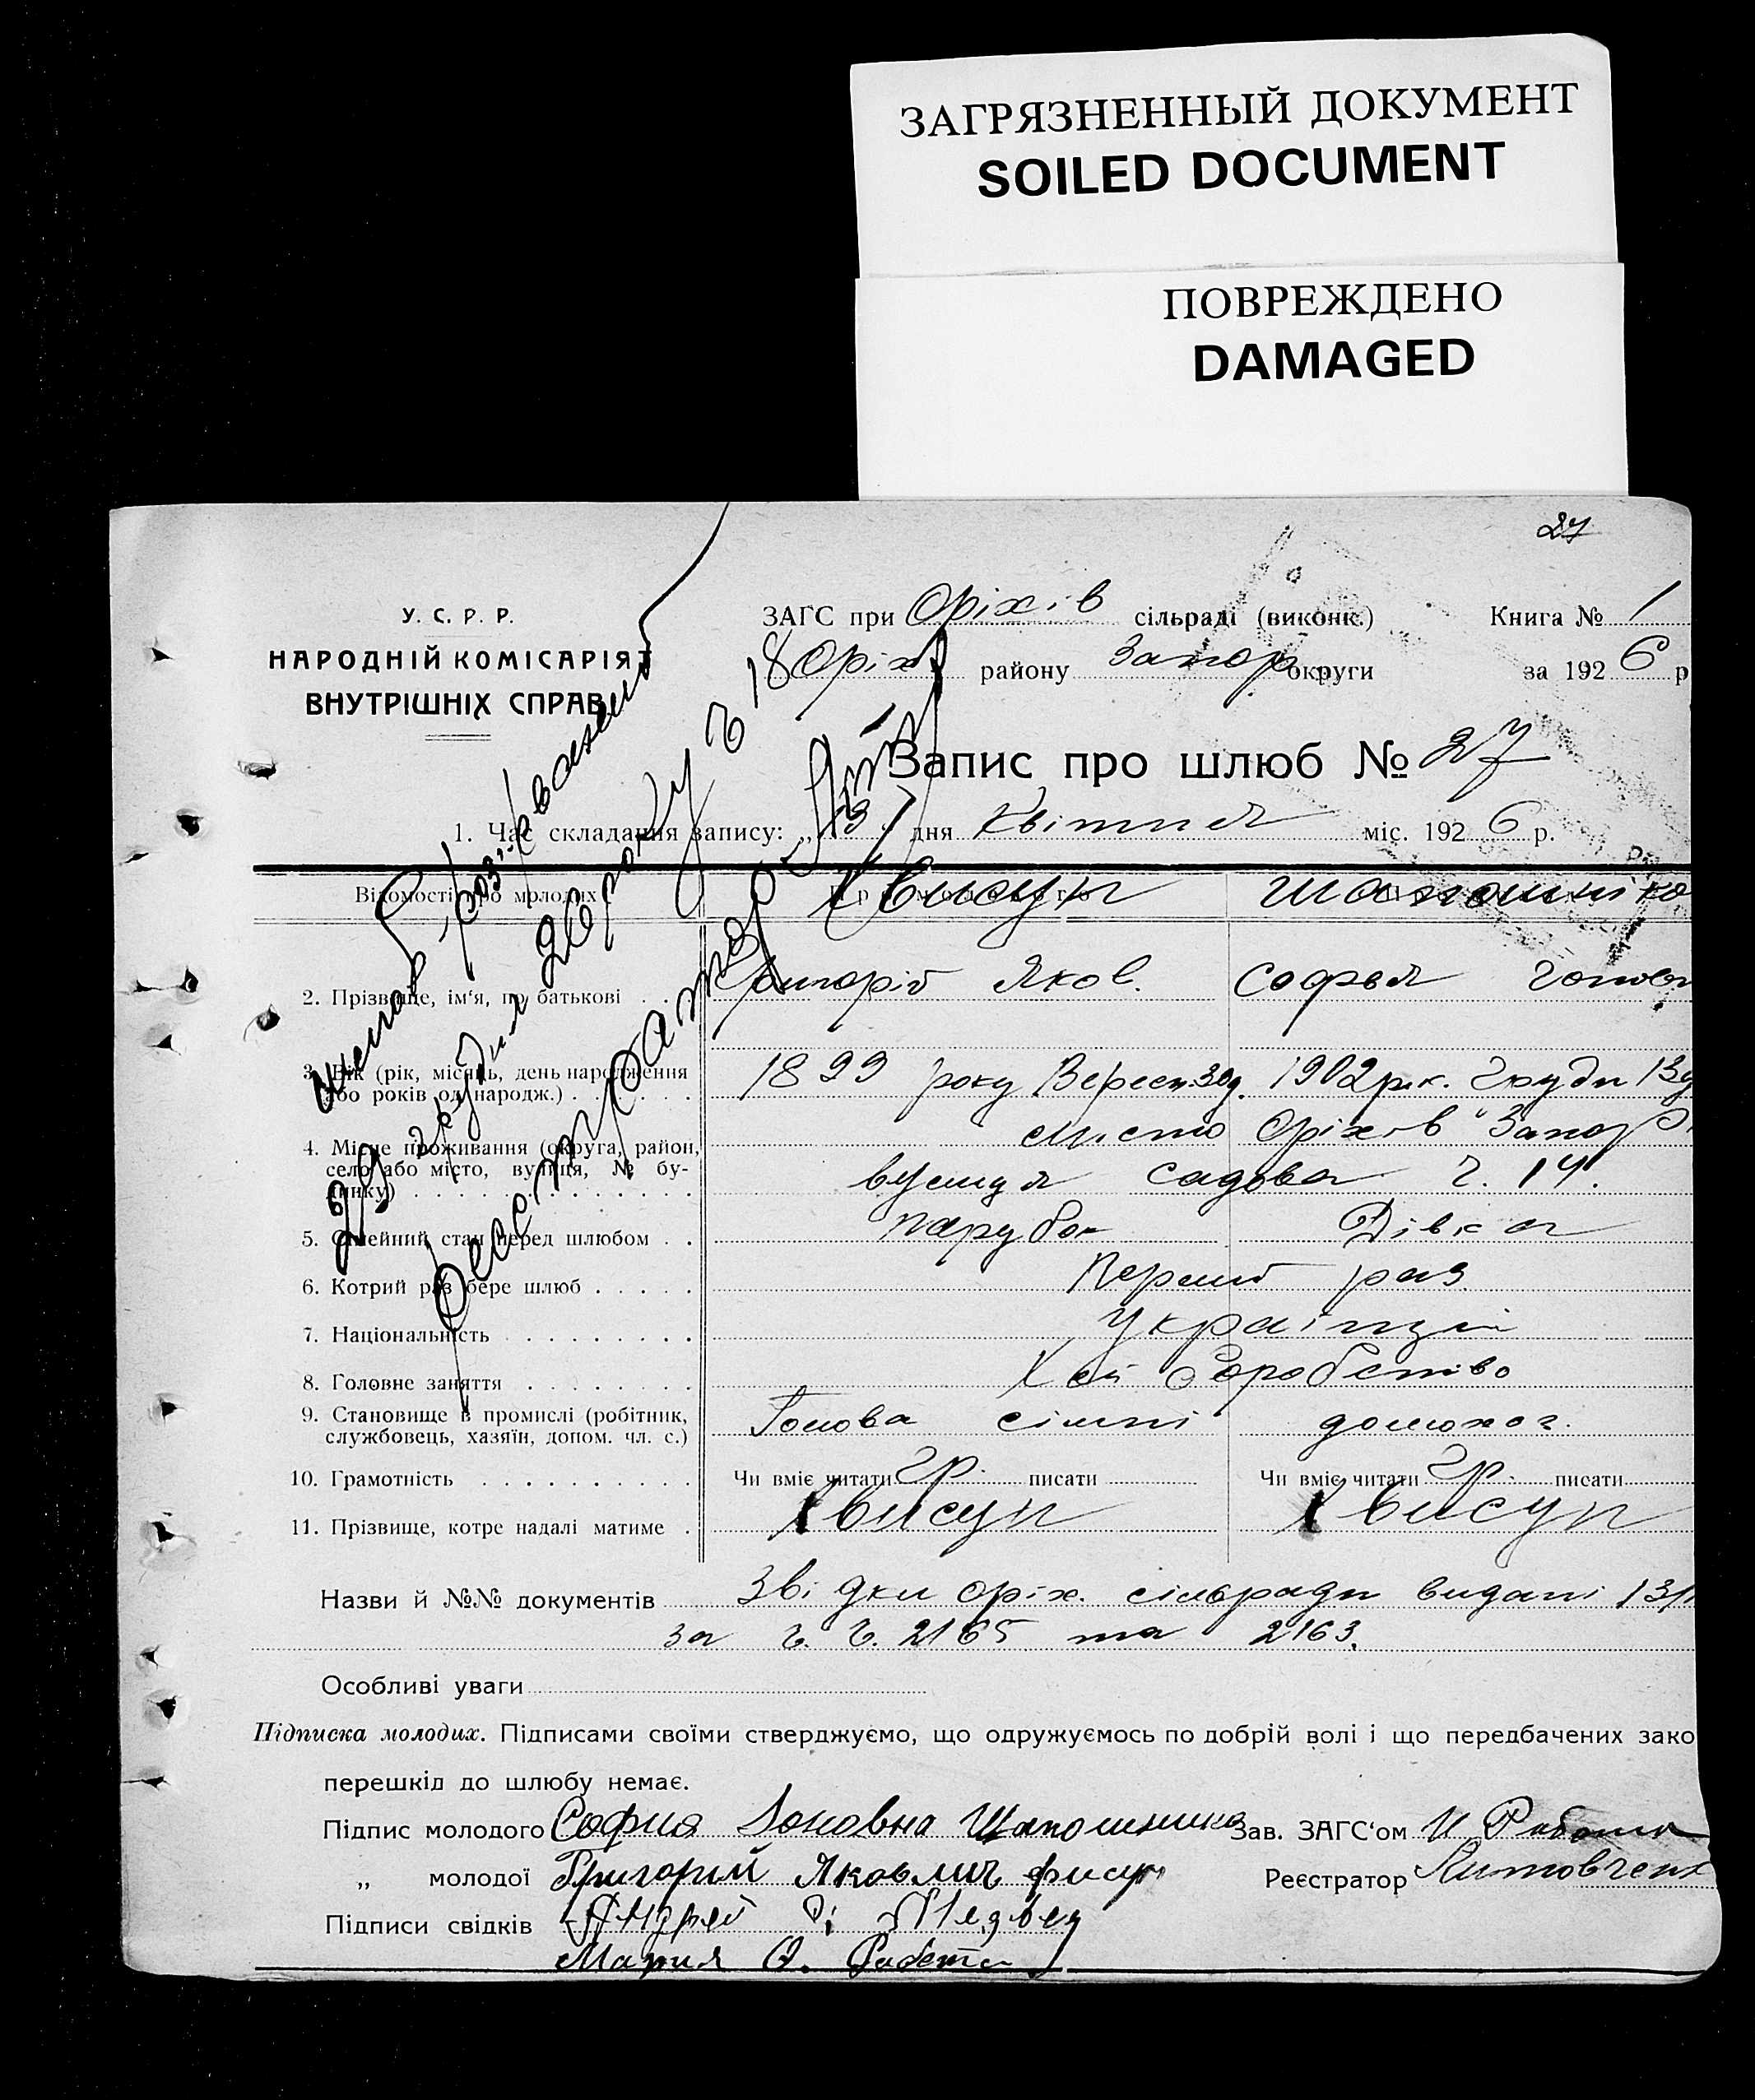 ЗАГРЯЗНЕННЫЙ ДОКУМЕНТ
SOILED DOCUMENT
ПОВРЕЖДЕНО
DAMAGED
27
У. С. Р. Р.
НАРОДНІЙ КОМІСАРІЯТ
ВНУТРІШНІХ СПРАВ
ЗАГС при Оріхів сільраді (виконк.) Книга № 1
Оріхів району Запор округи за 192 6 р
Запис про шлюб № 27
1. Час складання запису: „13" дня квітня міс. 192 6 р.
Відомості про молодих
Хвисун Шапошніко
2. Прізвище, ім'я, по батькові . . Григорій Яков. Софья
3. Вік (рік, місяць, день народження або років од народж.) . . . . . . 1899 року Вересн. 30д. 1902 рік. Грудн 13д
4. Місце проживання (округа, район, село або місто, вулиця, № будинку) . . . місто Оріхів Запор
вулиця садова ч. 14.
5. Сімейний стан перед шлюбом . . парубок Дівка
6. Котрий раз бере шлюб . . . . . Перший раз
7. Національність . . . . . . . . Україпци
8. Головне заняття . . . . . . . . Хліборобство
9. Становище в промислі (робітник, службовець, хазяїн, допом. чл. с.) Голова сімпі домохоз.
10. Грамотність . . . . . . . . . Чи вміє читати гр. писати Чи вміє читати гр. писати
11. Прізвище, котре надалі матиме . Хвисун Хвисун
Назви й №№ документів Звідки оріх. сільради видані 13/
за ч. ч. 2165 та 2163.
Особливі уваги
Підписка молодих. Підписами своїми стверджуємо, що одружуємось по добрій волі і що передбачених зако
перешкід до шлюбу немає.
Підпис молодого София Шапошника Зав. ЗАГС'ом И
„ молодої Григорий Яковлич фисун Реєстратор Литовченк
Підписи свідків Андрей Медвед
Мария